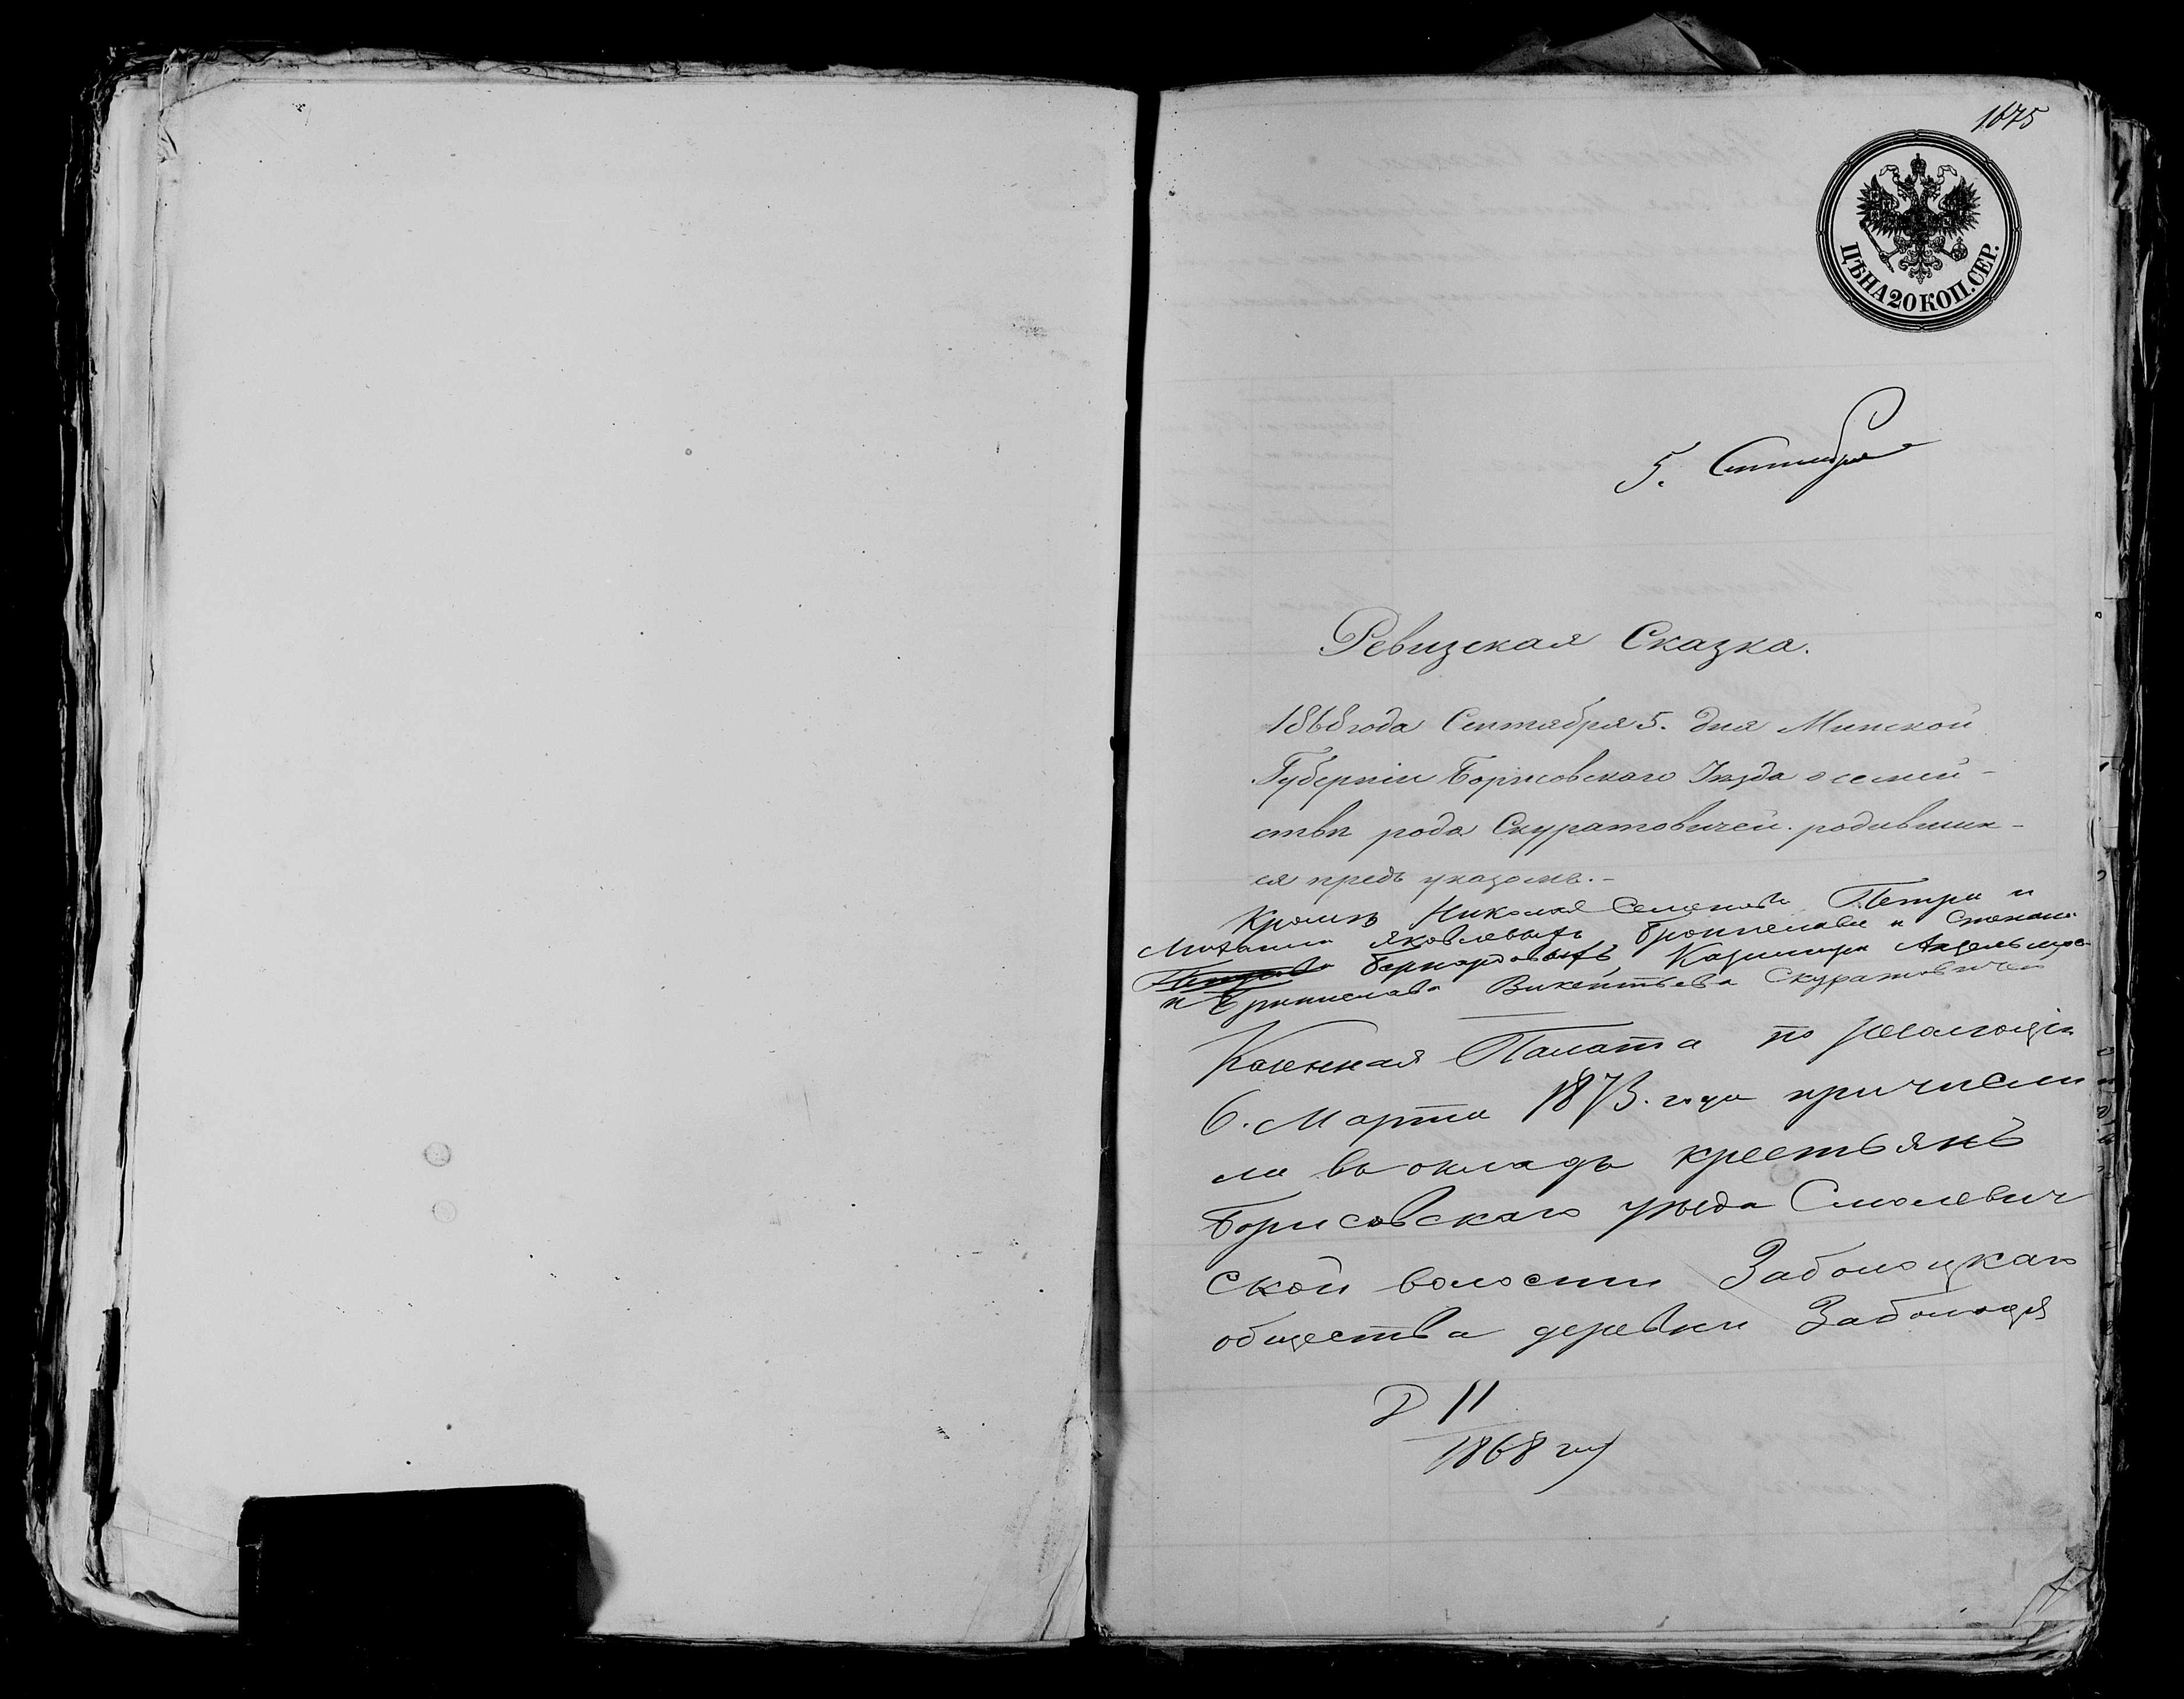 1675
ЦѢНА 20 КОП. СЕР.
5. Сентября
Ревизская Сказка.
1868 года Сентября 5. дня Минской
Губерніи Борисовскаго Уѣзда о семей-
ствѣ рода Скуратовичей. родивших-
ся предъ указомъ.-
Кромѣ Николая Семенова Петра и
Михаила Яковлевыхъ Брониславa и Степана
Бернардовыхъ, Казимира Адельмова
и Брониславa Викентьева Скуратовичей
Казенная Палата по резолюціи
6. Марта 1873. года причисли
ла въ окладъ крестьянъ
Борисовскаго уѣзда Смолевич
ской волости Заболоцкаго
общества деревни Заболоця
Д 11
1868 г.